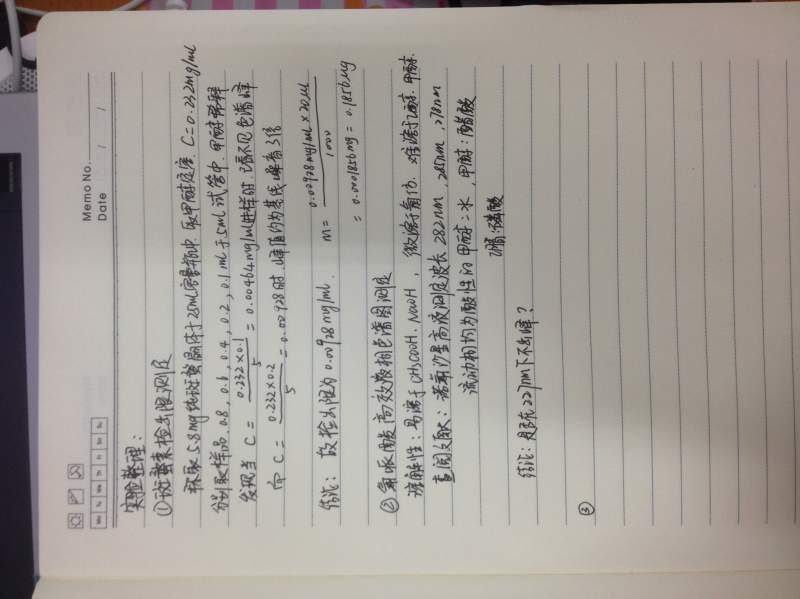 Memo No.
Date / /
Mo Tu We Th Fr Sa Su
实验整理:
①斑蝥素检出限测定
称取5.8mg纯斑蝥固体于25mL容量瓶中,取甲醇定容,C=0.232mg/ml
分别取样品0.8,0.6,0.4,0.2,0.1ml于5ml试管中,甲醇稀释
发现当 C = 0.232×0.1/5 = 0.00464mg/ml进样时,谱不见色谱峰
而 C = 0.232×0.2/5 = 0.00928时,峰值约为基线噪音3倍
结论: 故检出限为0.00928mg/ml. m= 0.00928mg/ml×20μl/1000
= 0.0001856mg = 0.1856μg
② 酸高效液相色谱图测定
溶解性:易溶于CH3COOH、NaOH,微溶于氯仿,难溶于乙醇、甲醇.
查阅文献:诺氟沙星高液测定波长282nm,285nm,278nm
流动相均为酸性的甲醇:水,甲醇:醋酸
乙腈:磷酸
结论:是否在227nm下不出峰?
③